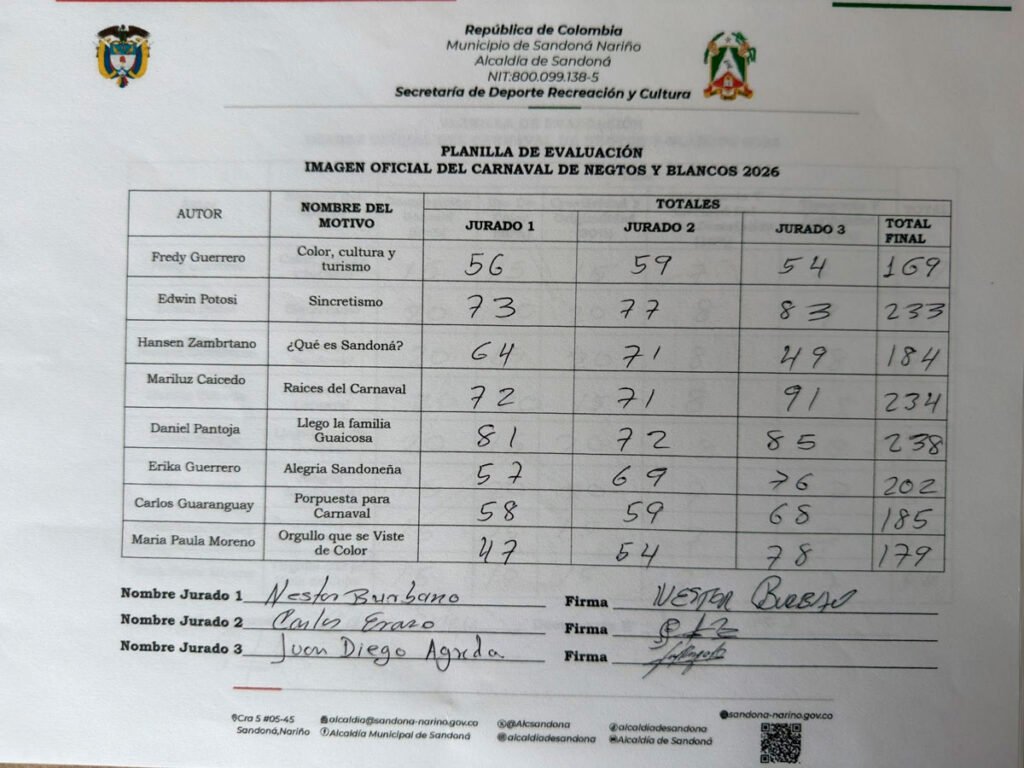 República de Colombia
Municipio de Sandoná Nariño
Alcaldía de Sandoná
NIT:800.099.138-5
Secretaría de Deporte Recreación y Cultura
PLANILLA DE EVALUACIÓN
IMAGEN OFICIAL DEL CARNAVAL DE NEGTOS Y BLANCOS 2026
AUTOR NOMBRE DEL MOTIVO TOTALES
JURADO 1 JURADO 2 JURADO 3 TOTAL FINAL
Fredy Guerrero Color, cultura y turismo 56 59 54 169
Edwin Potosi Sincretismo 73 77 83 233
Hansen Zambrtano ¿Qué es Sandoná? 64 71 49 184
Mariluz Caicedo Raices del Carnaval 72 71 91 234
Daniel Pantoja Llego la familia Guaicosa 81 72 85 238
Erika Guerrero Alegria Sandoneña 57 69 76 202
Carlos Guaranguay Porpuesta para Carnaval 58 59 68 185
Maria Paula Moreno Orgullo que se Viste de Color 47 54 78 179
Nombre Jurado 1 Nestor Burbano Firma NESTOR
Nombre Jurado 2 Carlos Erazo Firma
Nombre Jurado 3 Juan Diego Agreda Firma
Cra 5 #05-45
Sandoná,Nariño
alcaldia@sandona-narino.gov.co
Alcaldía Municipal de Sandoná
@Alcsandona
alcaldiadesandona
alcaldiadesandona
Alcaldía de Sandoná
sandona-narino.gov.co